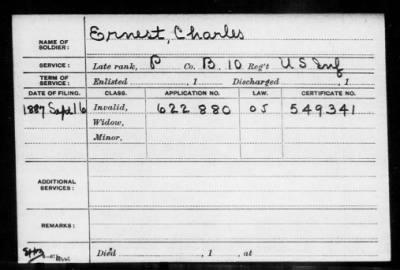 NAME OF SOLDIER: Ernest, Charles
SERVICE: Late rank, P Co. B. 10 Reg't U S Inf
TERM OF SERVICE: Enlisted , 1 Discharged , 1
DATE OF FILING. CLASS. APPLICATION NO. LAW. CERTIFICATE NO.
1887 Sept 16 Invalid, 622 880 OJ 549341
Widow,
Minor,
ADDITIONAL SERVICES:
REMARKS:
Died , 1 , at